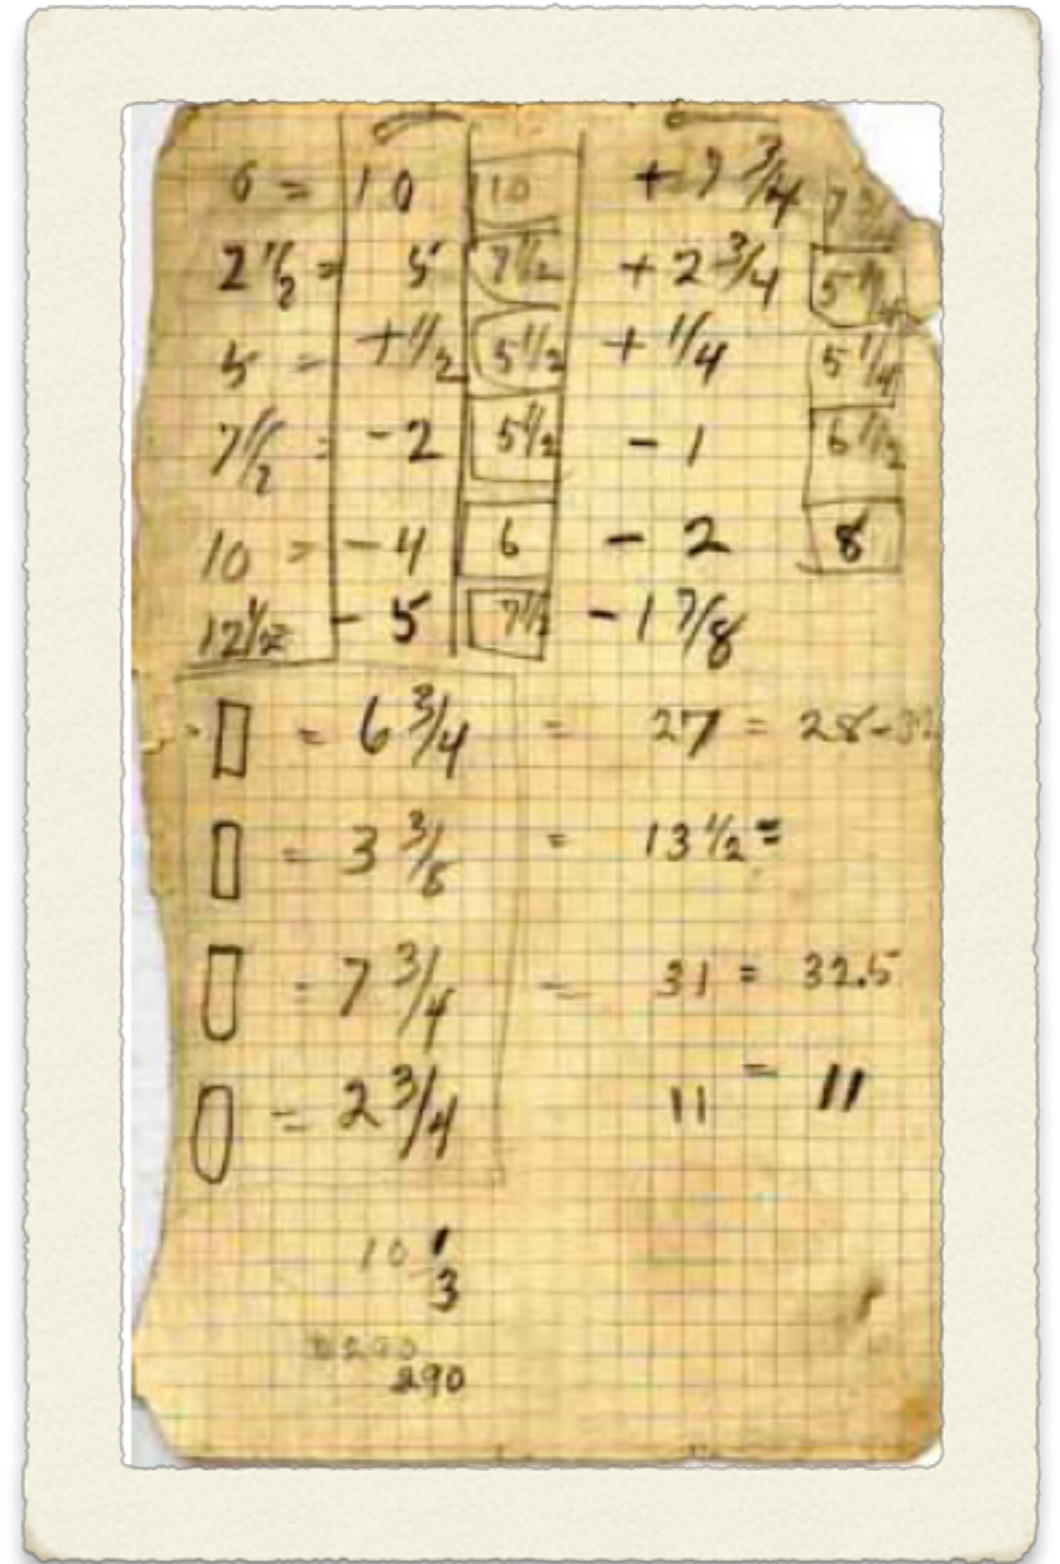 = 10 10 + 7 3/4 7 3/
2 1/2 = 5 7 1/2 + 2 3/4 5 1/4
5 = + 1/2 5 1/2 + 1/4 5 1/4
7 1/2 = - 2 5 1/2 - 1 6 1/2
10 = - 4 6 - 2 8
12 1/2 - 5 7 1/2 - 1 7/8
= 6 3/4 = 27 = 28-32
= 3 3/8 = 13 1/2 =
= 7 3/4 = 31 = 32.5
= 2 3/4 11 = 11
10 1/3
290